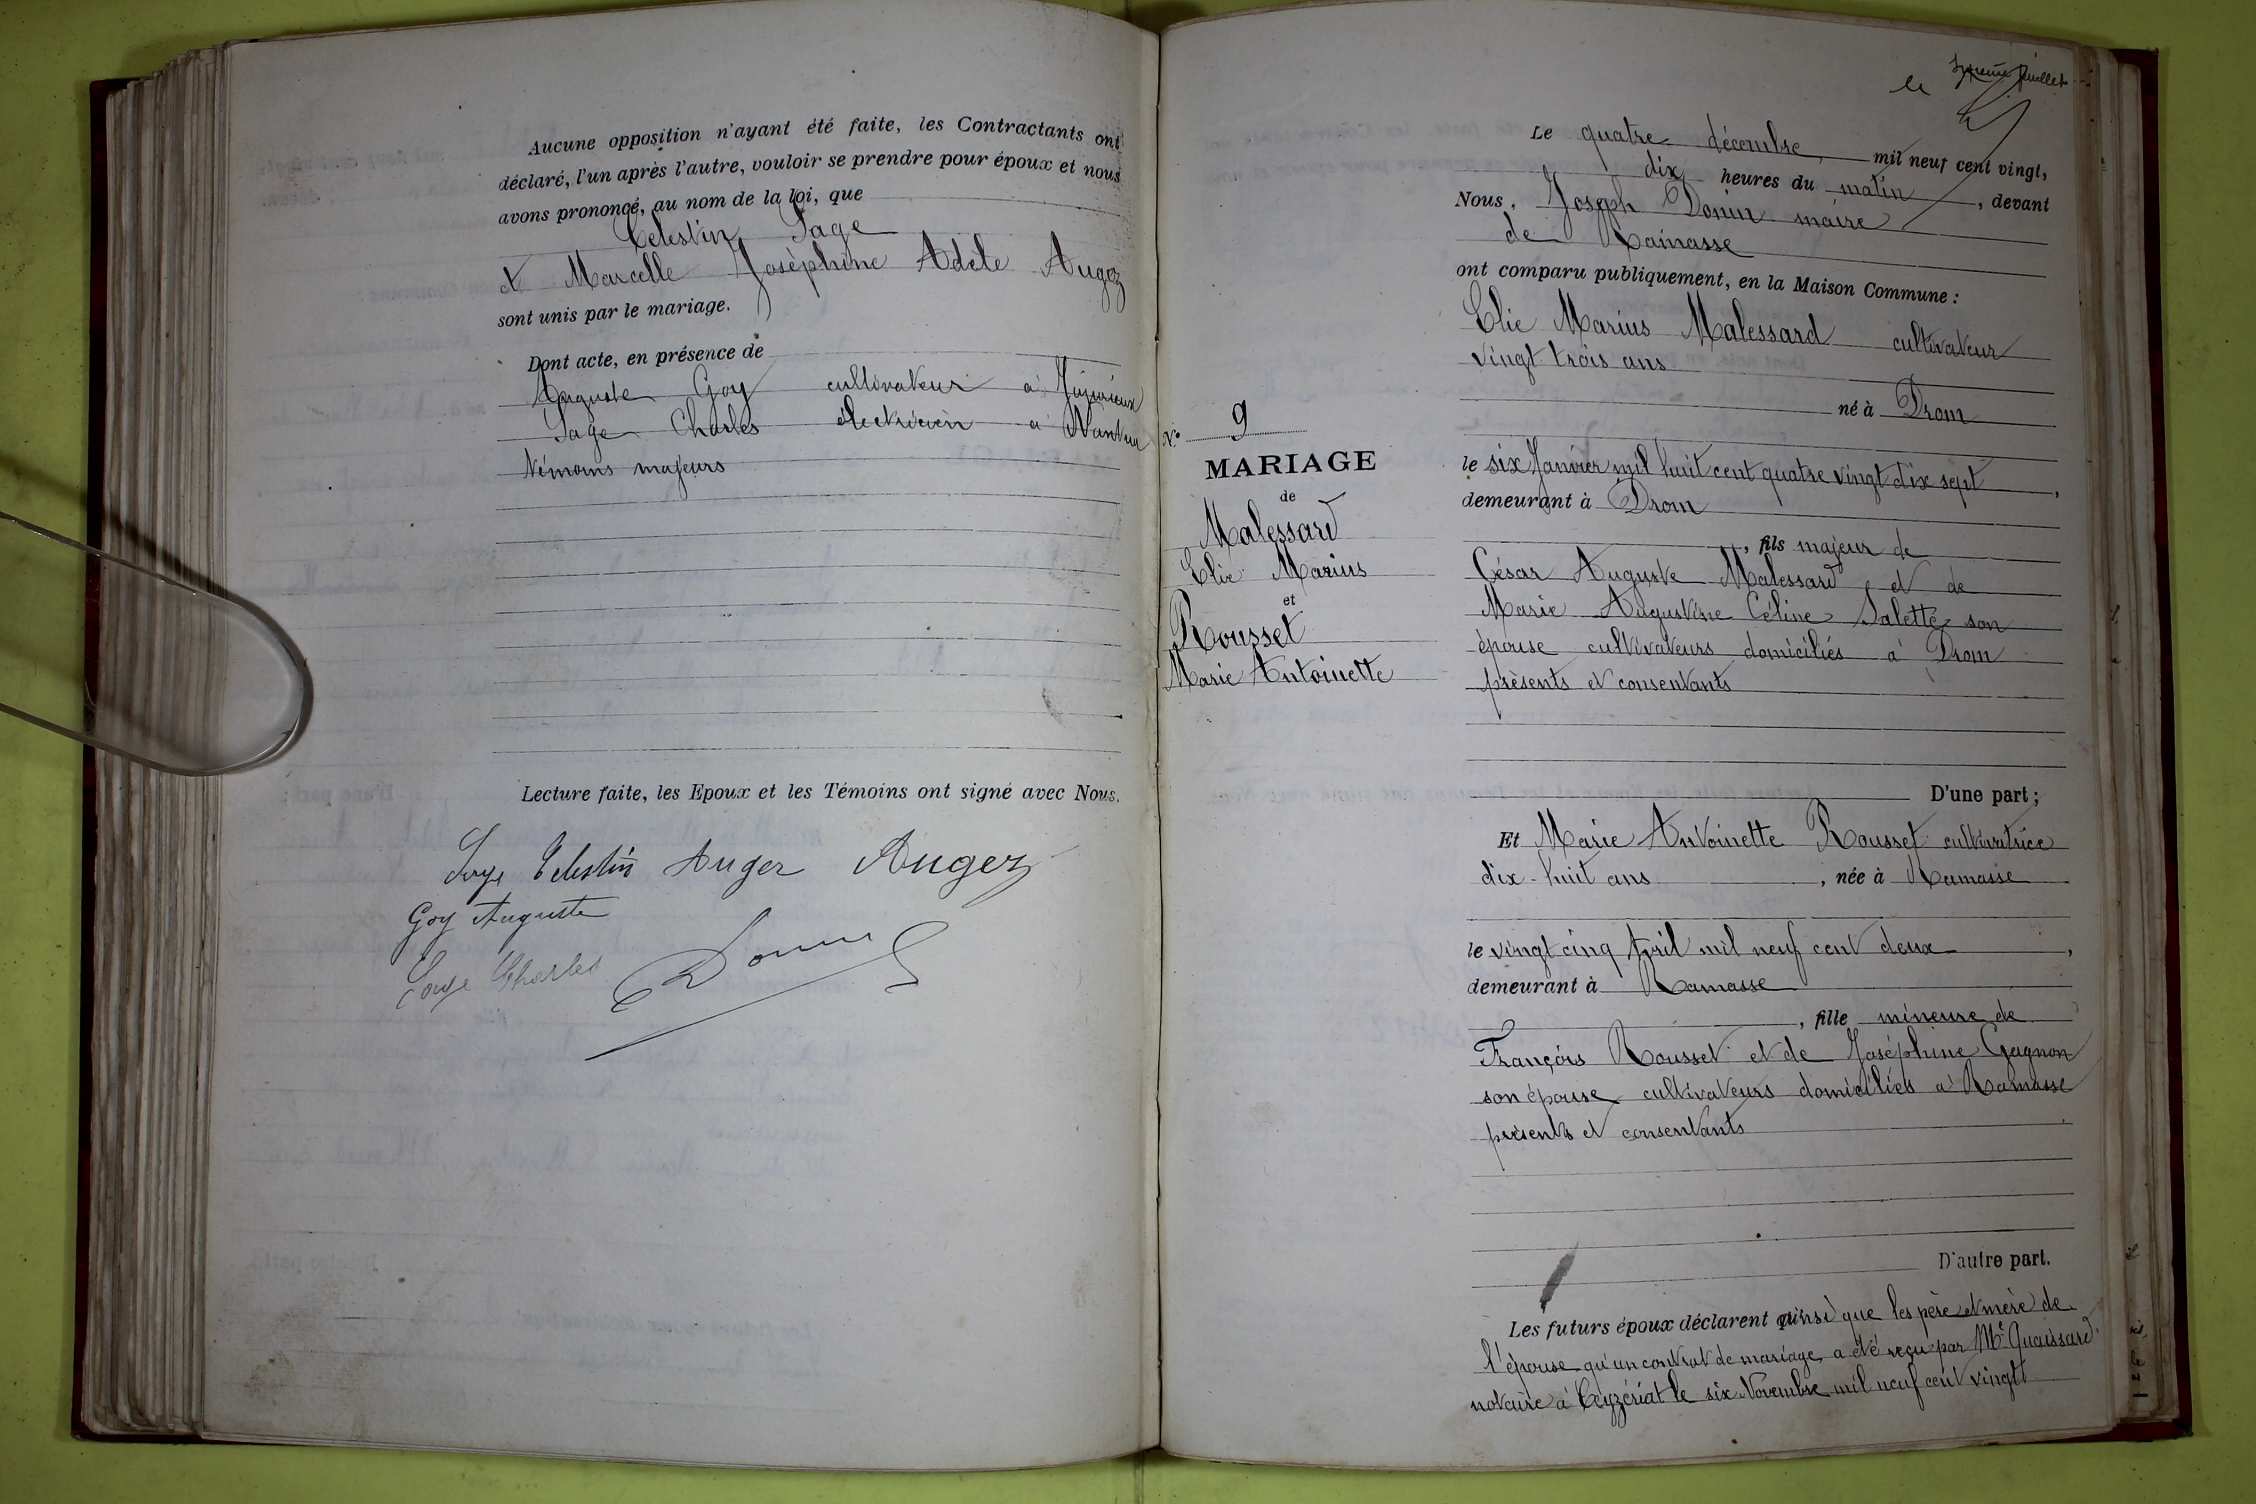 Aucune opposition n'ayant été faite, les Contractants ont
déclaré, l'un après l'autre, vouloir se prendre pour époux et nous
avons prononcé, au nom de la loi, que
Celestin Sage
et Marcelle Josèphine Adèle Augez
sont unis par le mariage.
Dont acte, en présence de
Auguste Goy cultivateur à Jujurieux
Sage Charles électricien à Nantua
Témoins majeurs
Lecture faite, les Epoux et les Témoins ont signé avec Nous.
Sage Celestin Auger Augez
Goy Auguste
Sage Charles Donin
le feuillet
Le quatre décembre mil neuf cent vingt,
dix heures du matin, devant
Nous, Joseph Donin maire
de Ramasse
ont comparu publiquement, en la Maison Commune :
Elie Marius Malessard cultivateur
vingt trois ans
né à Drom
le six Janvier mil huit cent quatre vingt dix sept,
demeurant à Drom
, fils majeur de
César Auguste Malessard et de
Marie Augustine Céline Salette son
épouse cultivateurs domiciliés à Drom
présents et consentants
D'une part ;
Et Marie Antoinette Rousset cultivatrice
dix-huit ans, née à Ramasse
le vingt cinq Avril mil neuf cent deux,
demeurant à Ramasse
, fille mineure de
François Rousset et de Joséphine Gagnon
son épouse cultivateurs domiciliés à Ramasse
présents et consentants
D'autre part.
Les futurs époux déclarent ainsi que les père et mère de
l'épouse qu'un contrat de mariage a été reçu par Me Quaissard
notaire à Ceyzériat le six Novembre mil neuf cent vingt
No 9
MARIAGE
de
Malessard
Elie Marius
et
Rousset
Marie Antoinette